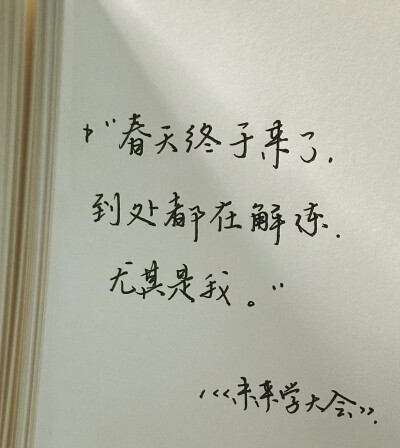 "春天终于来了,
到处都在解冻.
尤其是我。"
《未来学大会》.